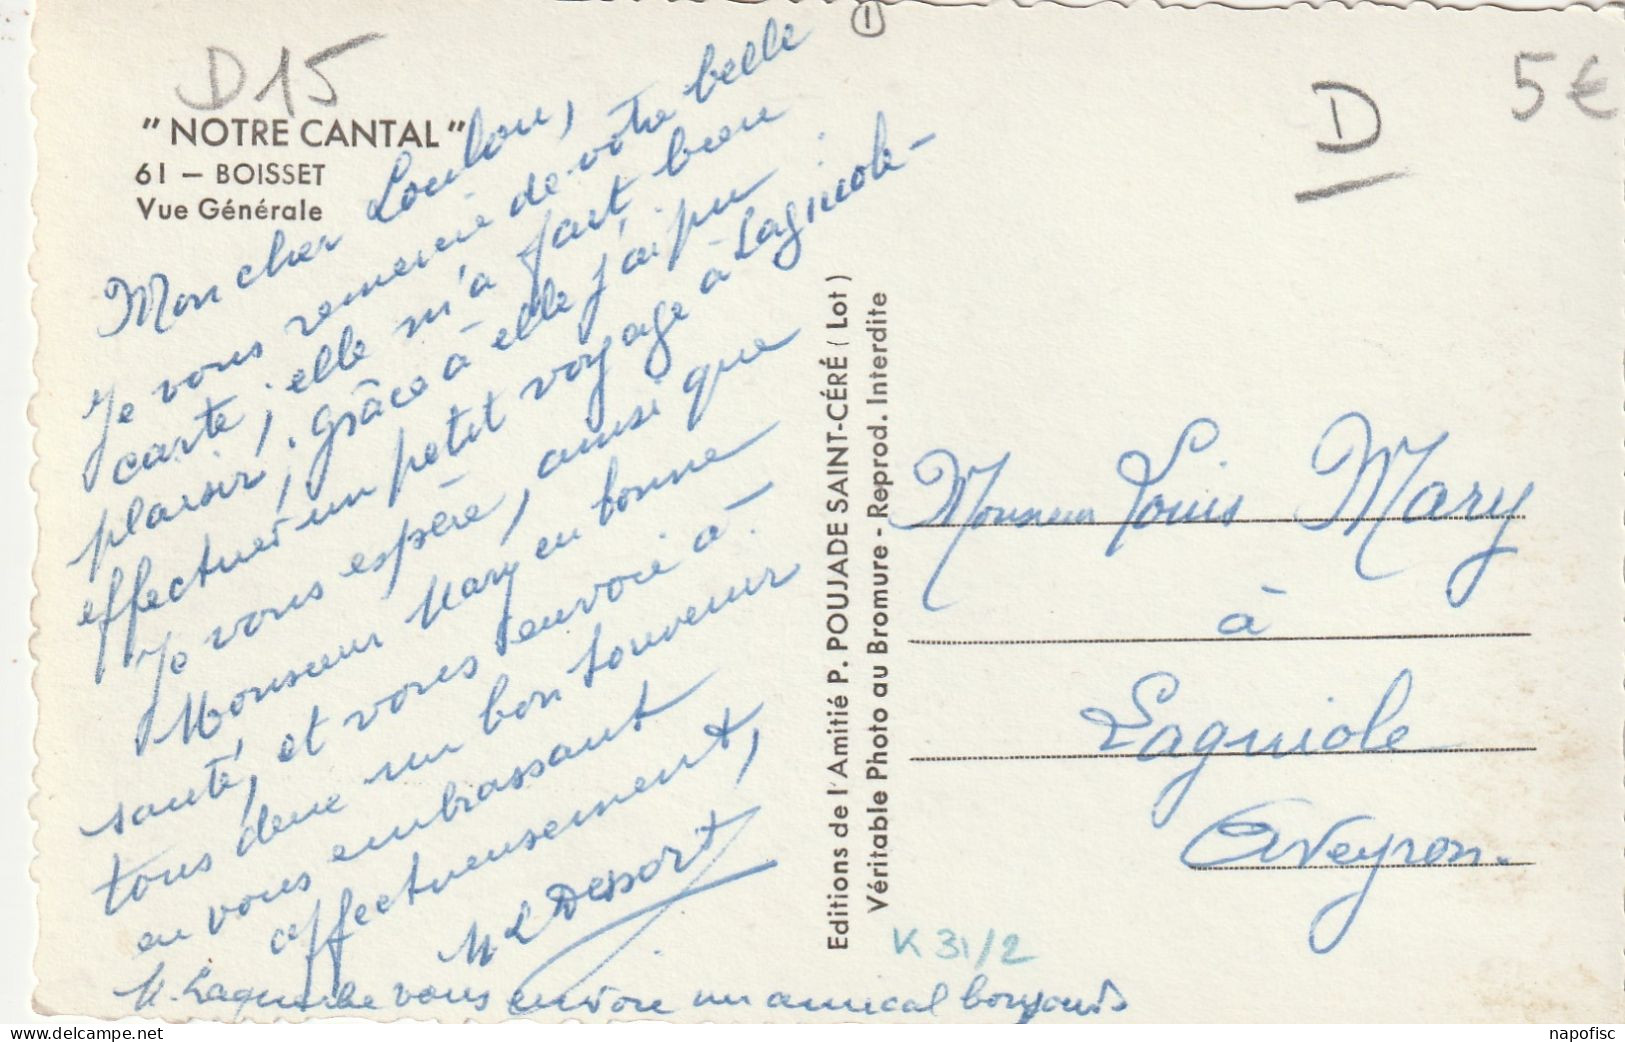 D15
D
5€
1
"NOTRE CANTAL"
61 — BOISSET
Vue Générale
Mon cher Loulou,
Je vous remercie de votre belle
carte ; elle m'a fait bien
plaisir ; grâce à elle j'ai pu
effectuer un petit voyage à Laguiole -
Je vous espère, ainsi que
Monsieur Mary en bonne
santé, et vous envoie à
tous deux un bon souvenir
en vous embrassant
affectueusement,
M L Desport
M. vous envoie un amical bonjour
Editions de l'Amitié P. POUJADE SAINT-CÉRÉ ( Lot )
Véritable Photo au Bromure - Reprod. Interdite
Monsieur Louis Mary
à
Laguiole
Aveyron.
K 31/2
napofisc